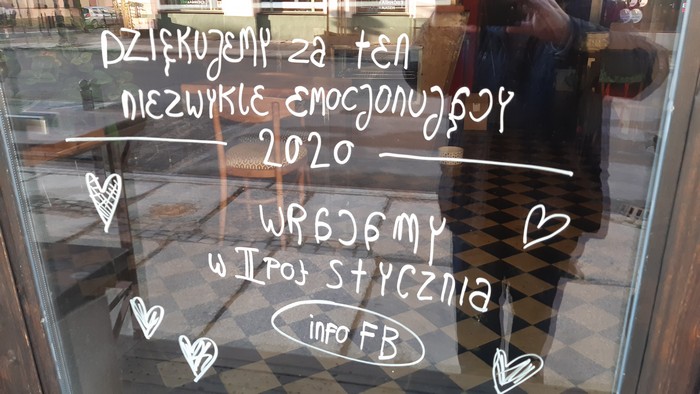 DZIĘKUJEMY za tEn
nIEZWYKLE EMOCJONUJĄCY
2020
WRaCaMY
w II POŁ StYCZNIa
info FB